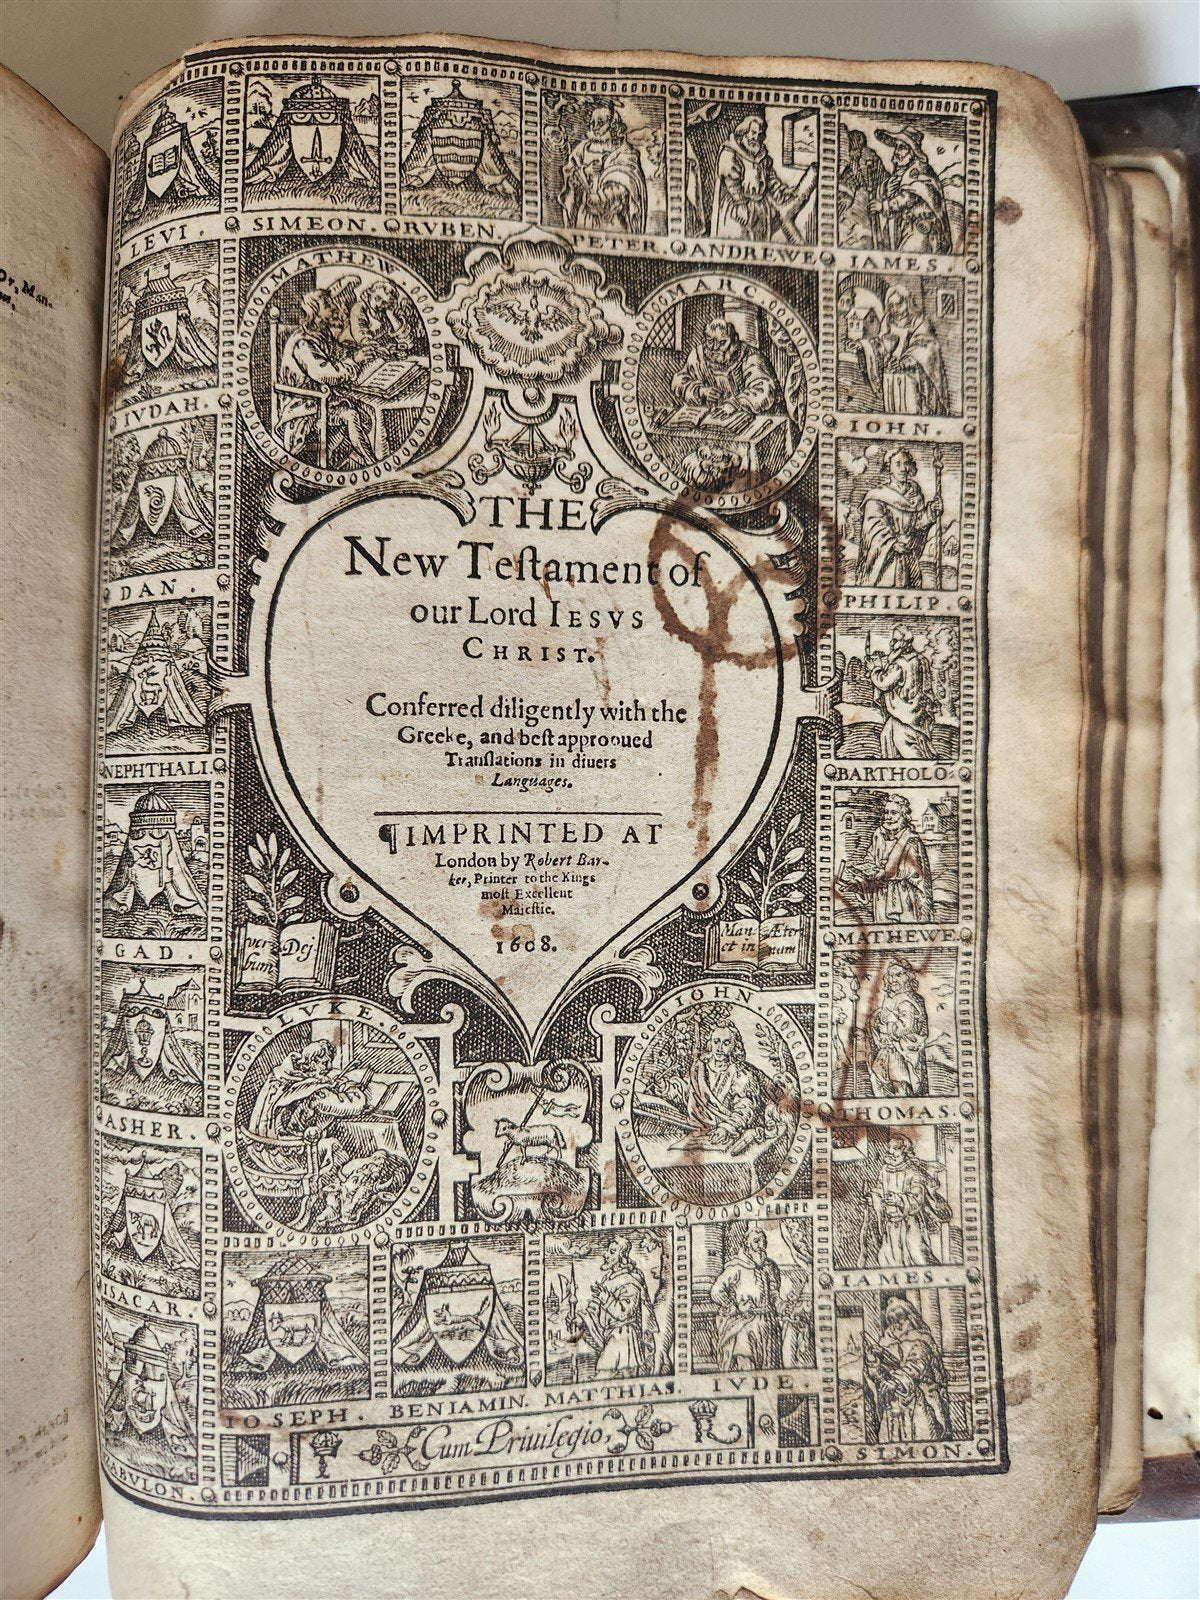 LEVI.
SIMEON.
RVBEN.
PETER.
ANDREWE
IAMES.
MATHEW.
MARC.
IVDAH.
IOHN.
DAN.
PHILIP.
NEPHTHALI.
BARTHOLO:
GAD.
MATHEWE
ASHER.
THOMAS.
ISACAR.
IAMES.
ZABVLON.
SIMON.
THE
New Teſtament of
our Lord IESVS
CHRIST.
Conferred diligently with the
Greeke, and beſt approoued
Tranſlations in diuers
Languages.
¶IMPRINTED AT
London by Robert Bar-
ker, Printer to the Kings
moſt Excellent
Maieſtie.
1608.
ver Dej
bum
Man Æter
et in num
LVKE.
IOHN.
IOSEPH.
BENIAMIN.
MATTHIAS.
IVDE.
I
Cum Priuilegio,
R